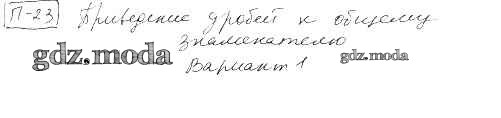 П-23 Приведение дробей к общему
знаменателю
gdz.moda gdz.moda
Вариант 1